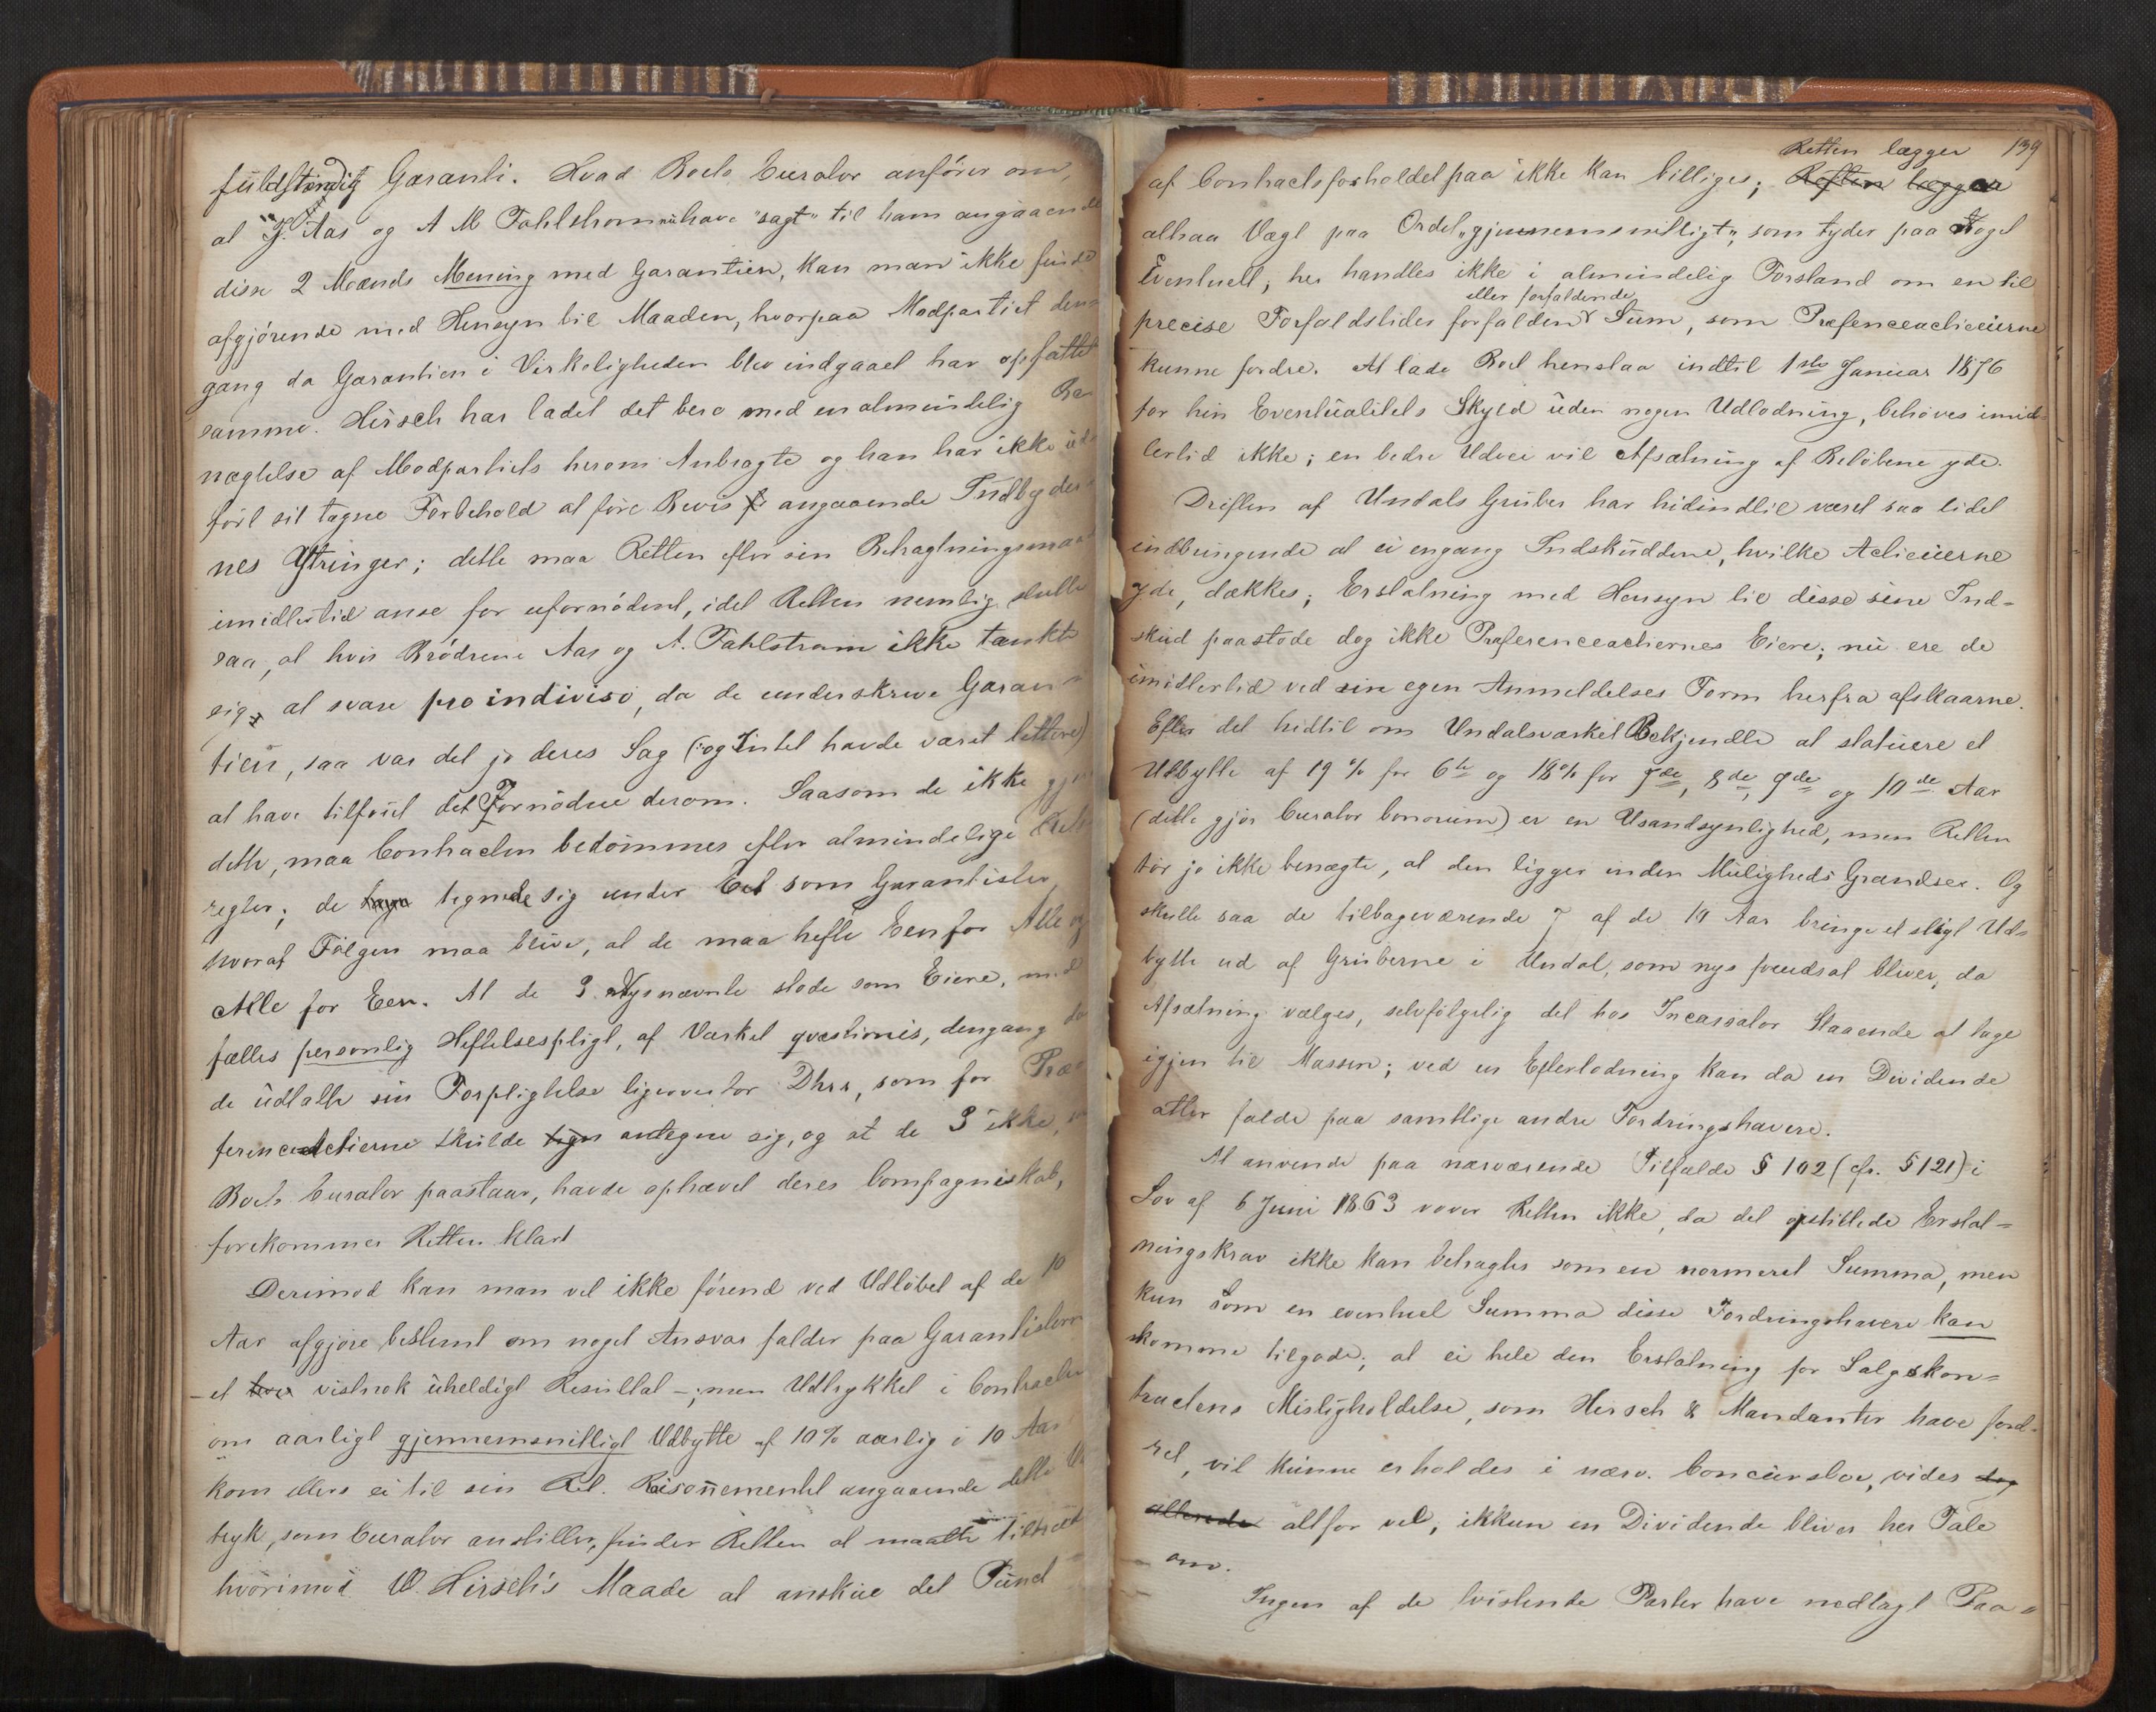 fuldstændig Garanti. Hvad Boets Curator anfører om,
at J. Aas og A M Fahlstrøm have "sagt" til ham angaaende
disse 2 Mænds Mening med Garantien, kan man ikke finde
afgjørende med Hensyn til Maaden, hvorpaa Modpartiet den-
gang da Garantien i Virkeligheden blev indgaaet har opfattet
samme. Hirsch har ladet det bero med en almindelig Be-
nægtelse af Modpartiets herom Anbragte og han har ikke ud-
ført sit tagne Forbehold at føre Bevis angaaende Indbyder-
nes Ytringer; dette maa Retten efter sin Betragtningsmaade
imidlertid anse for ufornødent, idet Retten nemlig slutter
saa, at hvis Brødrene Aas og A. Fahlstrøm ikke tænkte
sig, at svare pro indiviso, da de underskreve Garan-
tien, saa var det jo deres Sag (og Intet havde været lettere)
at have tilføiet det Fornødne derom. Saasom de ikke gjorde
dette, maa Contracten bedømmes efter almindelige Rets-
regler; de tegnede sig under Eet som Garantister,
hvoraf Følgen maa blive, at de maa hefte Een for Alle og
Alle for Een. At de 3 Nysnævnte stode som Eiere, med
fælles personlig Heftelsespligt, af Værket qvæstionis, dengang da
de udtalte sin Forpligtelse ligeoverfor Dhrr, som for Præ-
ferenceactierne skulde antegne sig, og at de 3 ikke, som
Boets Curator paastaar, havde ophævet deres Compagniskab,
forekommer Retten klart
Derimod kan man vel ikke førend ved Udløbet af de 10
Aar afgjøre bestemt om noget Ansvar falder paa Garantisterne
- et vistnok uheldigt Resultat -; men Udtrykket i Contracten
om aarligt gjennemsnitligt Udbytte af 10% aarlig i 10 Aar
kom ellers ei til sin Ret. Raisonnementet angaaende dette Ud-
tryk, som Curator anstiller, finder Retten at maatte tiltræde
hvorimod W. Hirsch's Maade at anskue det Punct
139
Retten lægger
af Contractsforholdet paa ikke kan billiges; Retten lægger
altsaa Vægt paa Ordet "gjennemsnitligt", som tyder paa Noget
Eventuelt; her handles ikke i almindelig Forstand om en til
eller forfaldende
precise Forfaldstider forfalden Sum, som Præferenceactieeierne
kunne fordre. At lade Boet henstaa indtil 1ste Januar 1876
for hin Eventualitets Skyld uden nogen Udlodning, behøves imid-
lertid ikke; en bedre Udvei vil Afsætning af Beløbene yde.
Driften af Undals Gruber har hidindtil været saa lidet
indbringende at ei engang Indskuddene, hvilke Actieeierne
yde, dækkes; Erstatning med Hensyn til disse sine Ind-
skud paastode dog ikke Præferenceactiernes Eiere; nu ere de
imidlertid ved sin egen Anmeldelses Form herfra afskaarne.
Efter det hidtil om Undalsværket Bekjendte at statuere et
Udbytte af 19% for 6te og 18% for 7de, 8de, 9de og 10de Aar
(dette gjør Curator bonorum) er en Usandsynlighed, men Retten
tør jo ikke benægte, at den ligger inden Muligheds Grændser. Og
skulle saa de tilbageværende 7 af de 19 Aar bringe et sligt Ud-
bytte ud af Gruberne i Undal, som nys forudsat bliver, da
Afsætning vælges, selvfølgelig det hos Incassator Staaende at tage
igjen til Massen; ved en Efterlodning kan da en Dividende
atter falde paa samtlige andre Fordringshavere.
At anvende paa nærværende Tilfælde § 102 (cfr. § 121) i
Lov af 6 Juni 1863 vover Retten ikke, da det opstillede Erstat-
ningskrav ikke kan betragtes som en normeret Summa, men
kun som en eventuel Summa disse Fordringshavere kan
komme tilgode; at ei hele den Erstatning for Salgskon-
tractens Misligholdelse, som Hirsch & Mandanter have ford-
ret, vil kunne erholdes i nærv. Concursbo, vides dog
allerede altfor vel, ikkun en Dividende bliver her Tale
om.
Ingen af de tvistende Parter have nedlagt Paa-